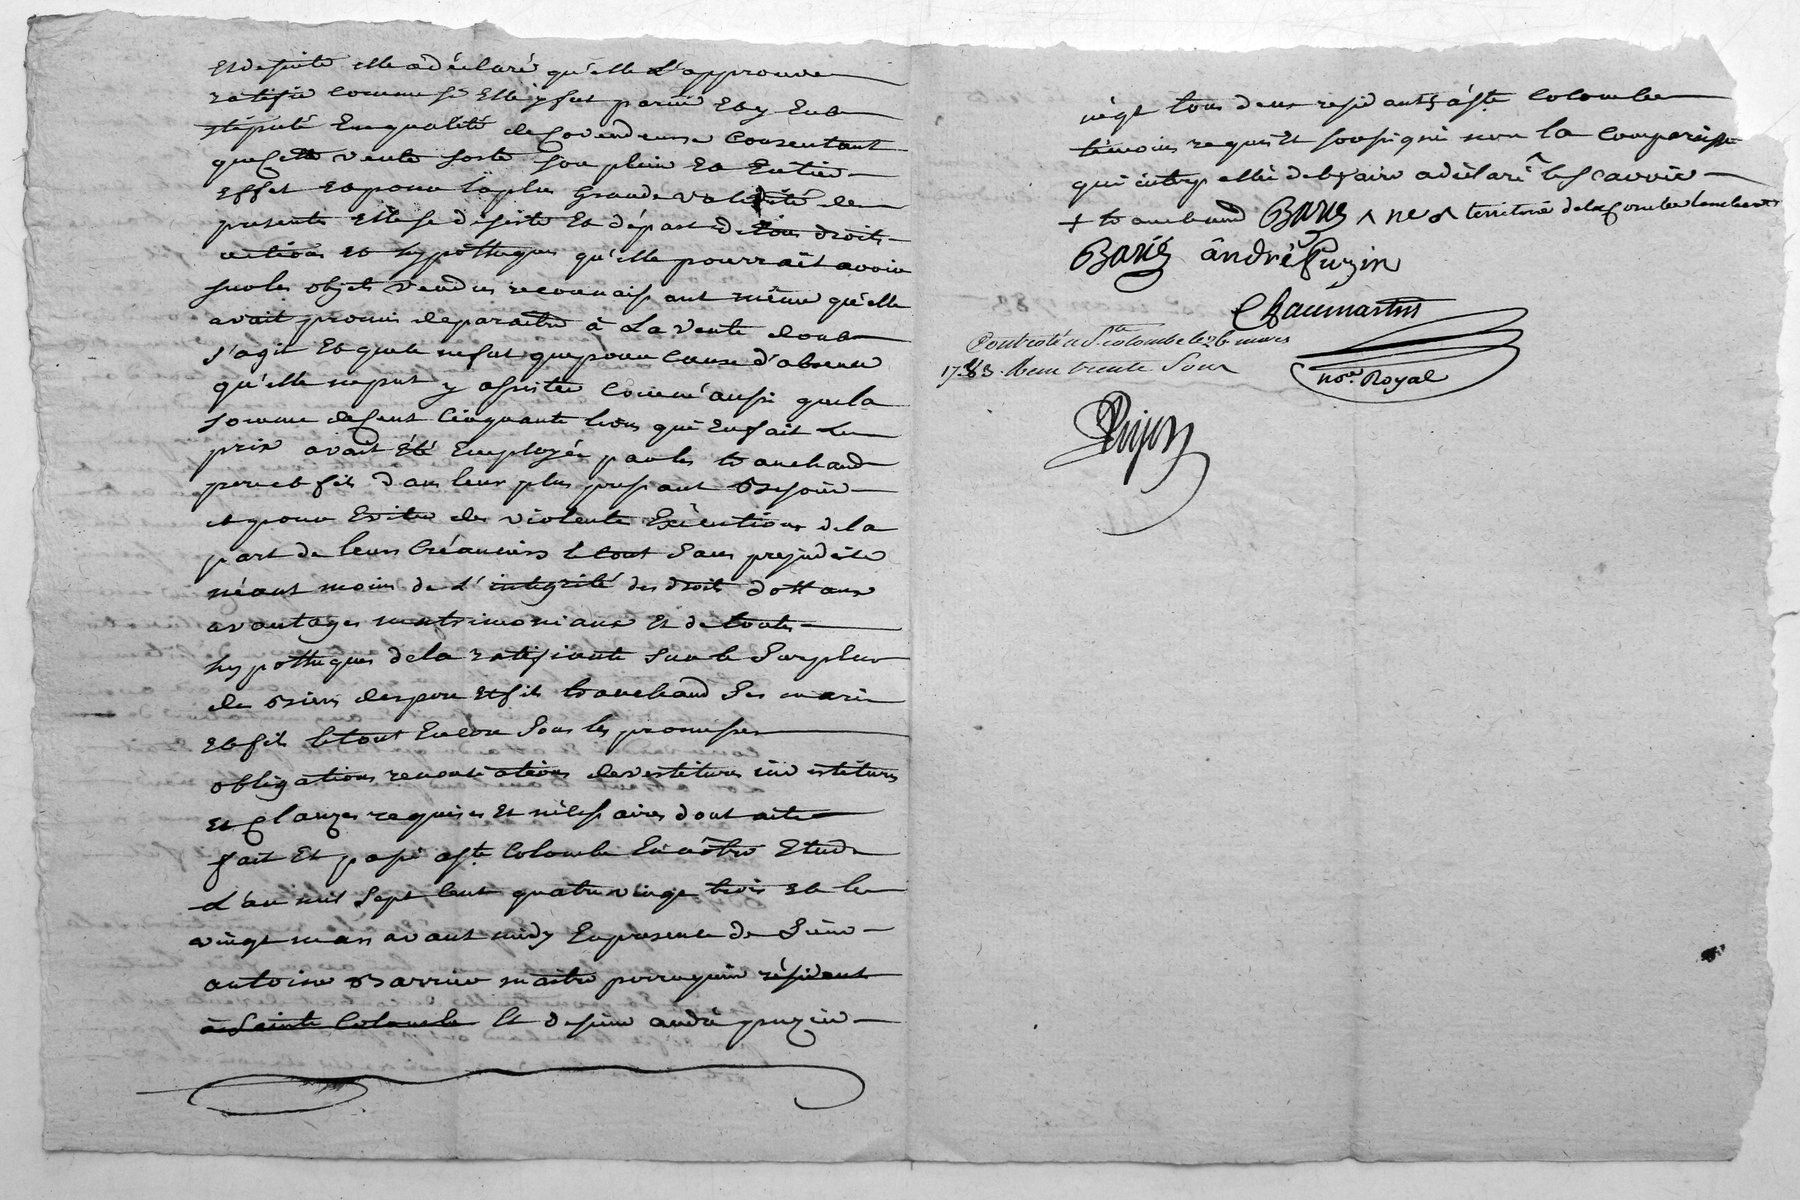 Et de suite elle a déclaré qu'elle l'approuve
ratifie comme si elle y fut partie Et y Eut
stipulé En qualité de Covendeuse Consentant
que Cette vente sorte son plein Et Entier
Effet Et pour la plus Grande validité de
presente Elle se desiste Et départ de tous droits
actions Et hypotheques qu'elle pourrait avoir
sur les objets vendus reconnaissant même qu'elle
avait promis de paraitre à La vente dont
s'agit Et que le ne fut que pour Cause d'absence
qu'elle ne put y assister Comme aussi que la
somme de Cent Cinquante livres qui En fait Le
prix avait été Employée par les tranchand
pere et fils dans leur plus pressant Besoin
et pour Eviter des violente Exécutions de la
part de leurs Créanciers le tout sans prejudice
néant moins de L'integrité des droits dottaux
avantages matrimoniaux Et de toutes
hypotheques de la ratifiante sur le Surplus
des Biens des pere Et fils tranchand Ses mari
Et fils le tout Encore Sous les promesses
obligations renonciations devestitures investitures
Et Clauzes requises Et nécessaires dont acte
fait Et passé à Ste Colombe En nôtre Etude
L'an mil Sept Cent quatre vingt trois Et le
vingt mars avant midy En presence de Sieur
antoine Barrier maitre perruquier résident
à Sainte Colombe Et de sieur andré puzin
négt tous deux residants à Ste Colombe
témoins requis Et soussigné non la Comparaiss
qui interpellée de le faire a déclaré ne scavoir
+ tranchand
Barié andré Puzin
Chaumartin
Controlé a Ste Colombe le 26 mars
1783. Reçu trente Sous
nore. Royal